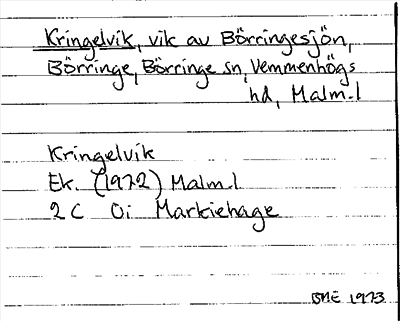 Kringelvik, vik av Börringesjön,
Börringe, Börringe sn, Vemmenhögs
hd, Malm.l
Kringelvik
Ek. (1972) Malm.l
2 C 0i Markiehage
BME 1973